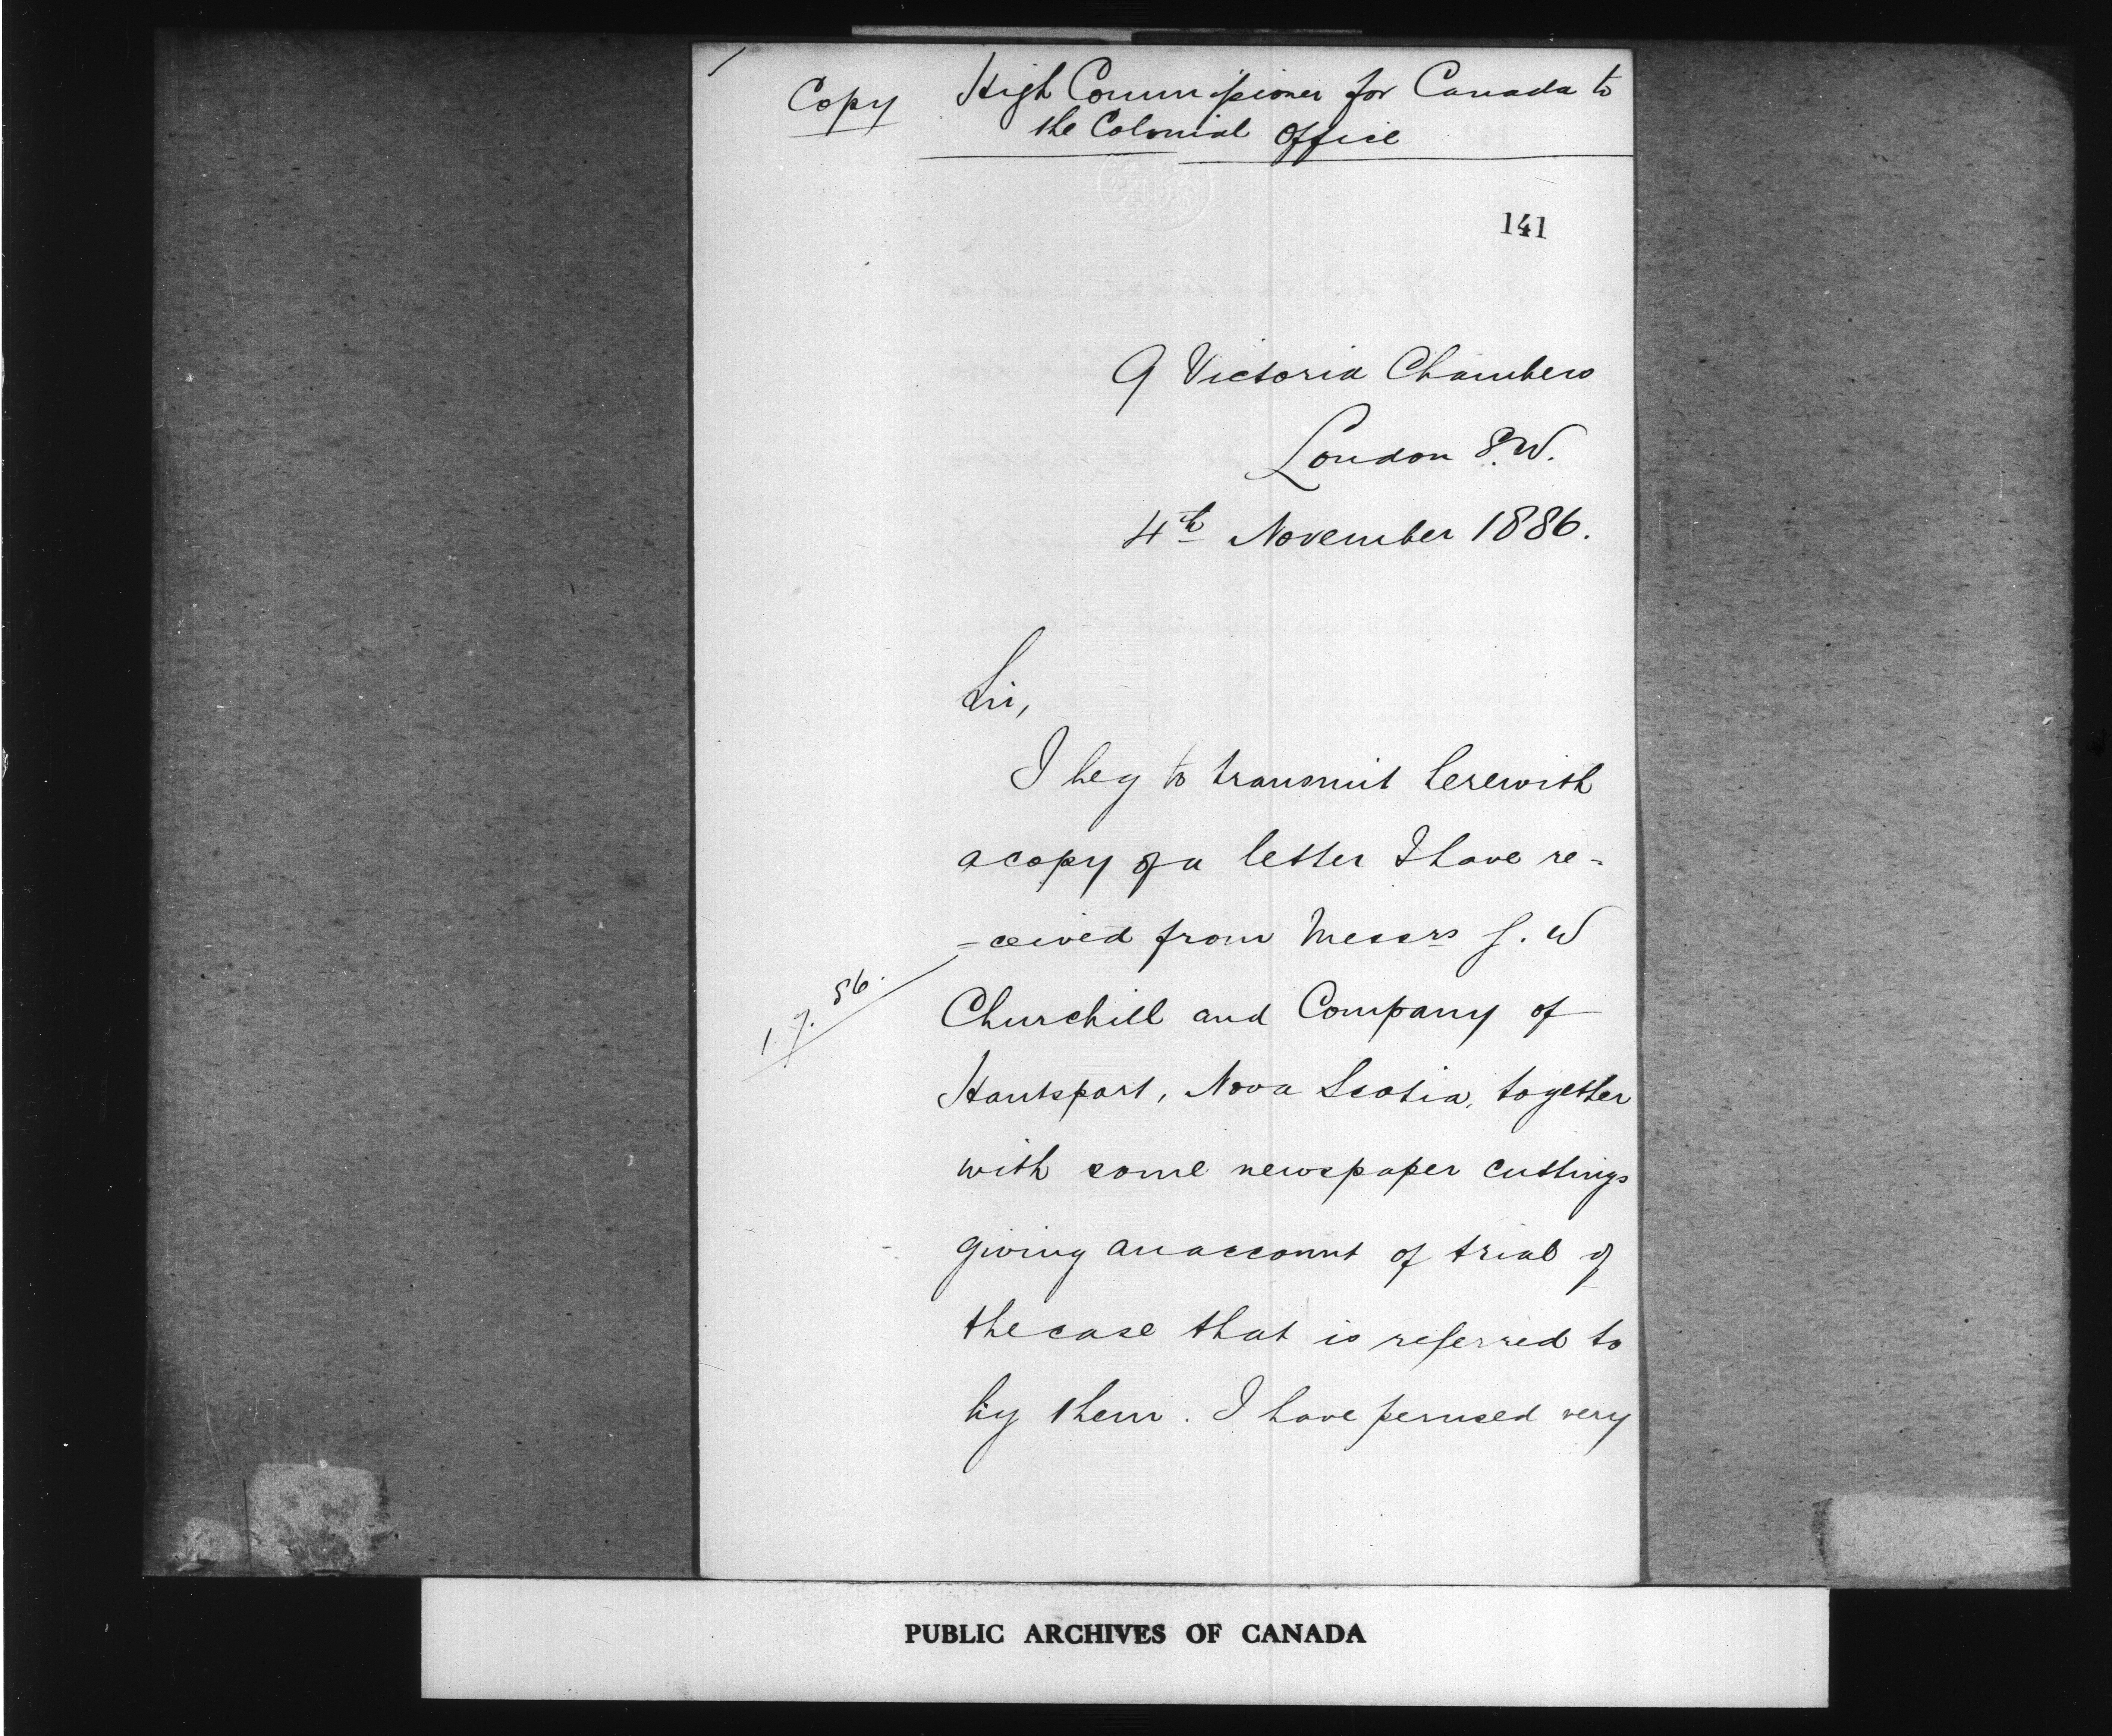 Copy High Commissioner for Canada to
the Colonial Office
141
9 Victoria Chambers
London S.W.
4th November 1886.
Sir,
I beg to transmit herewith
a copy of a letter I have re-
-ceived from Messrs J. W
1. 7. 86.
Churchill and Company of
Hantsport, Nova Scotia, together
with some newspaper cuttings
giving an account of trial of
the case that is referred to
by them. I have perused very
PUBLIC ARCHIVES OF CANADA